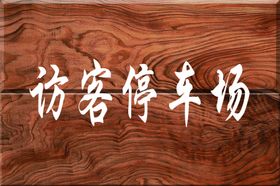 访客停车场